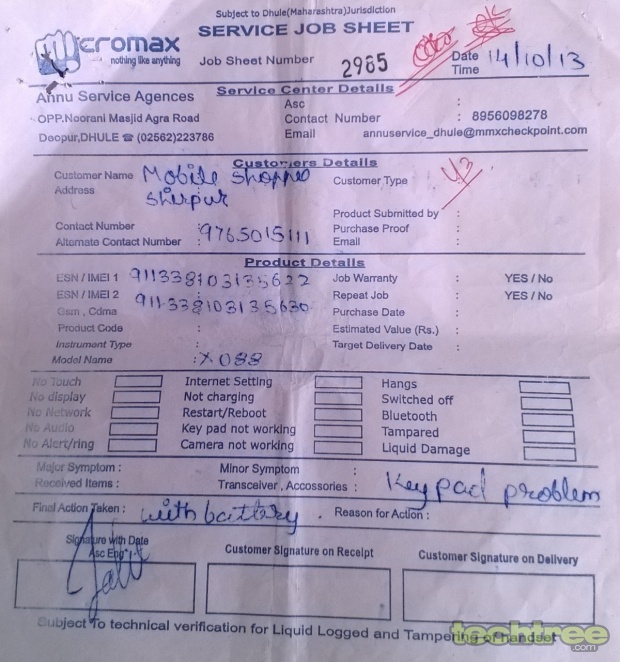 Subject to Dhule(Maharashtra)Jurisdiction
SERVICE JOB SHEET
micromax
nothing like anything
Job Sheet Number 2965
Date 14/10/13
Time
Annu Service Agences
OPP.Noorani Masjid Agra Road
Deopur,DHULE ☎ (02562)223786
Service Center Details
Asc :
Contact Number : 8956098278
Email annuservice_dhule@mmxcheckpoint.com
Customers Details
Customer Name Mobile Shoppee
Address Shirpur
Customer Type :
Product Submitted by :
Contact Number : 9765015111
Purchase Proof :
Alternate Contact Number :
Email :
Product Details
ESN / IMEI 1 911338103135622
Job Warranty : YES / No
ESN / IMEI 2 911338103135630
Repeat Job : YES / No
Gsm , Cdma
Purchase Date :
Product Code :
Estimated Value (Rs.) :
Instrument Type :
Target Delivery Date :
Model Name : X088
No Touch Internet Setting Hangs
No display Not charging Switched off
No Network Restart/Reboot Bluetooth
No Audio Key pad not working Tampared
No Alert/ring Camera not working Liquid Damage
Major Symptom : Minor Symptom :
Received Items : Transceiver , Accossories : Keypad problem
Final Action Taken : with battery . Reason for Action :
Signature with Date
Asc Eng
Customer Signature on Receipt
Customer Signature on Delivery
Subject To technical verification for Liquid Logged and Tampering of handset
techtree
.com